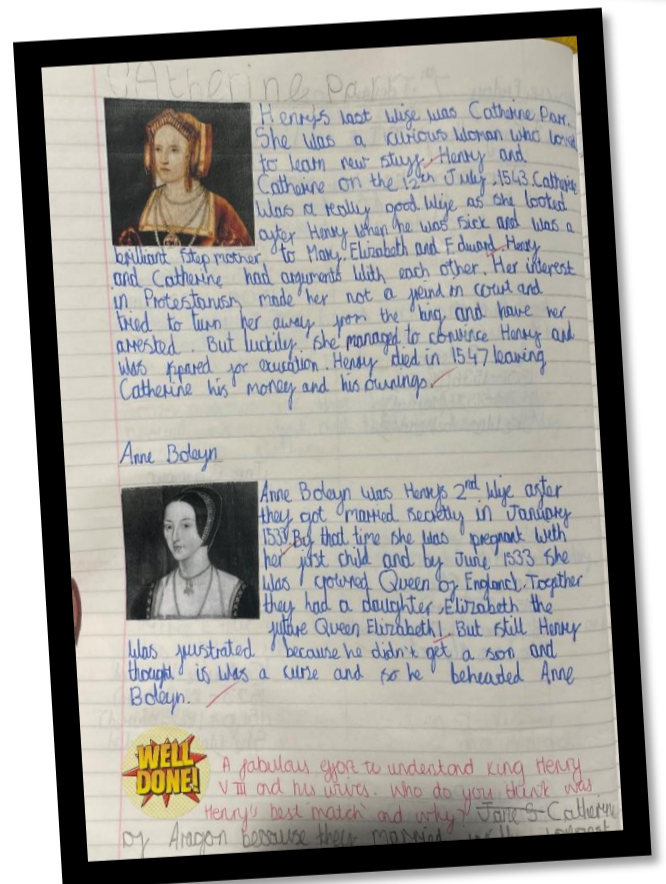 CAtherine parr
Henrys last wife was Catherine Parr.
She was a curious woman who loved
to learn new stuff. Henry and
Catherine on the 12th July 1543. Catherine
was a really good wife as she looked
after Henry when he was sick and was a
brilliant stepmother, to Mary, Elizabeth and Edward. Henry
and Catherine had arguments with each other. Her interest
in Protestanism made her not a freind in court and
tried to turn her away from the king and have her
arrested. But luckily, she managed to convince Henry and
was spared for execution. Henry died in 1547 leaving
Catherine his money and his ownings.
Anne Boleyn
Anne Boleyn was Henrys 2nd wife after
they got married secretly in January
1533. By that time she was pregnant with
her first child and by June 1533 she
was crowned Queen of England. Together
they had a daughter, Elizabeth the
future Queen Elizabeth I. But still Henry
was frustrated because he didn't get a son and
thought is was a curse and so he beheaded Anne
Boleyn.
WELL
DONE!
A fabulous effort to understand King Henry
VIII and his wives. Who do you think was
Henry's best match and why? Jane S- Catherine
of Aragon because they married